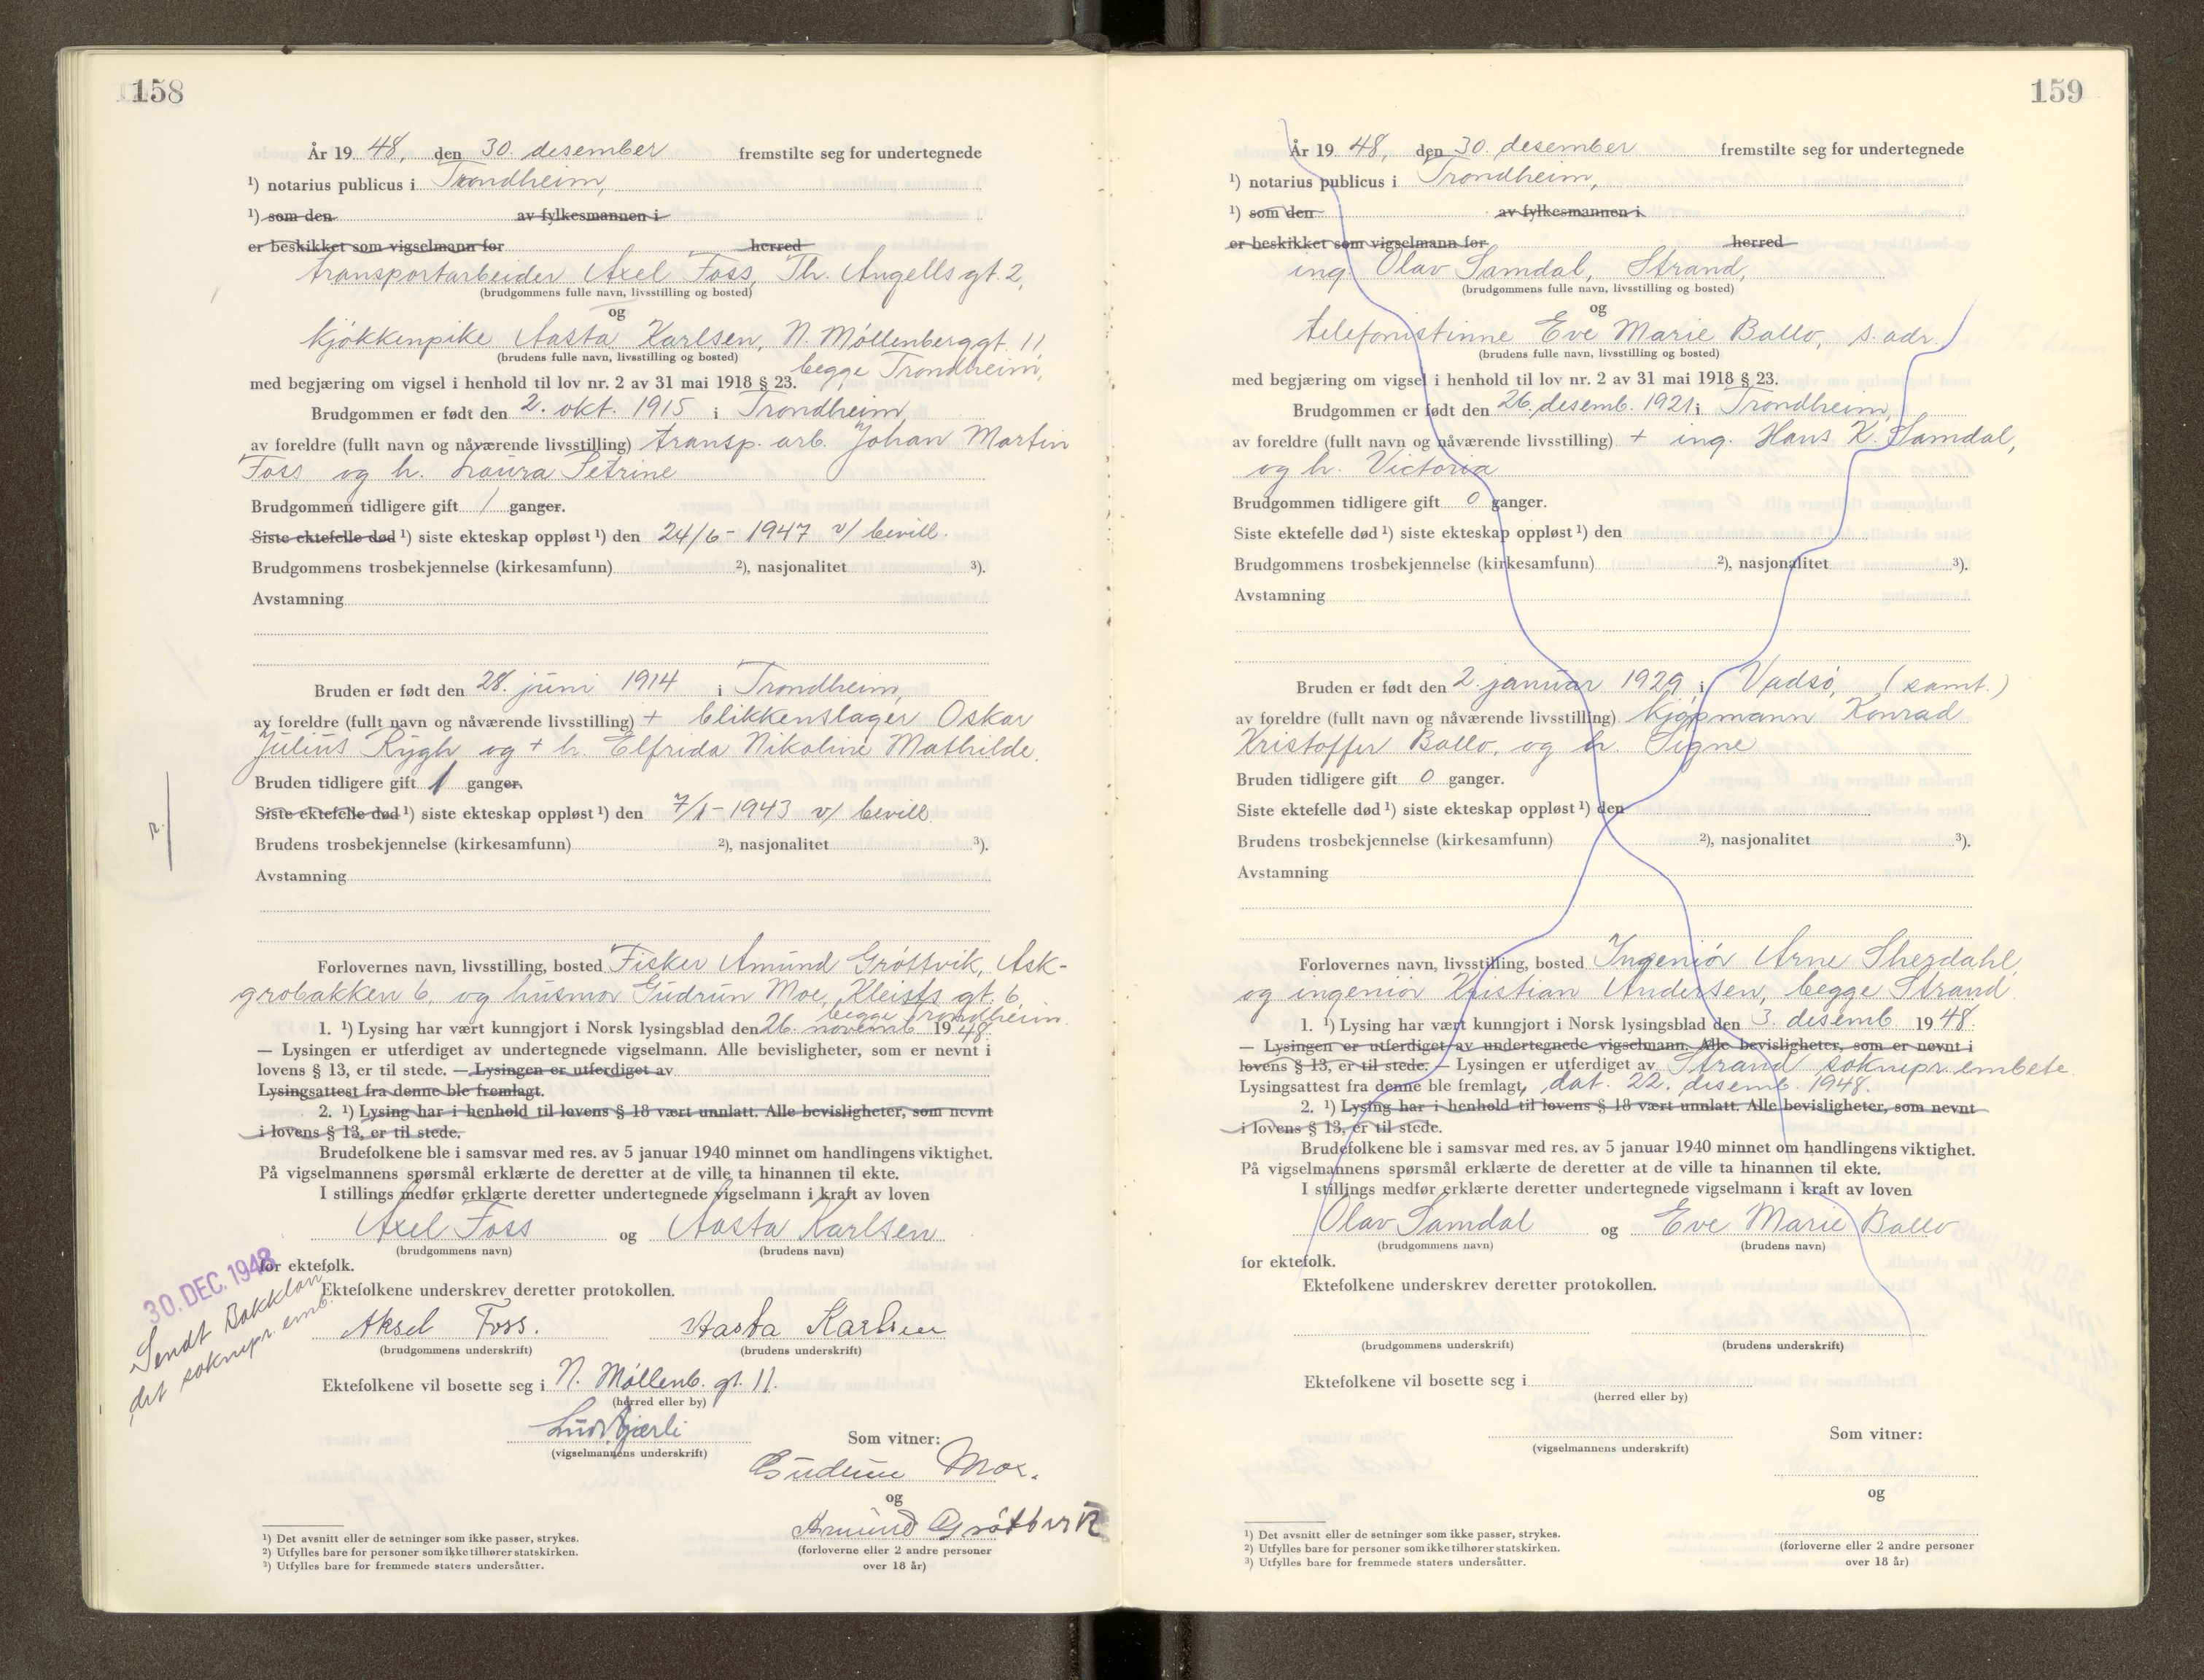 158
År 19 48, den 30. desember fremstilte seg for undertegnede
¹) notarius publicus i Trondheim,
¹) som den av fylkesmannen i
er beskikket som vigselmann for herred
transportarbeider Axel Foss, Th. Angells gt 2,
(brudgommens fulle navn, livsstilling og bosted)
og
kjøkkenpike Aasta Karlsen, N. Møllenberggt. 11,
(brudens fulle navn, livsstilling og bosted)
begge Trondheim,
med begjæring om vigsel i henhold til lov nr. 2 av 31 mai 1918 § 23.
Brudgommen er født den 2. okt. 1915 i Trondheim,
av foreldre (fullt navn og nåværende livsstilling) transp. arb. Johan Martin
Foss og h. Laura Petrine
Brudgommen tidligere gift 1 ganger.
Siste ektefelle død ¹) siste ekteskap oppløst ¹) den 24/6 - 1947 v/ bevill.
Brudgommens trosbekjennelse (kirkesamfunn) ²), nasjonalitet ³).
Avstamning
Bruden er født den 28. juni 1914 i Trondheim,
av foreldre (fullt navn og nåværende livsstilling) + blikkenslager Oskar
Julius Rygh og + h. Elfrida Nikoline Mathilde.
Bruden tidligere gift 1 ganger.
Siste ektefelle død ¹) siste ekteskap oppløst ¹) den 7/1 - 1943 v/ bevill.
Brudens trosbekjennelse (kirkesamfunn) ²), nasjonalitet ³).
Avstamning
Forlovernes navn, livsstilling, bosted Fisker Amund Grøttvik, Ask-
grobakken 6, og husmor Gudrun Moe, Kleists gt. 6,
begge Trondheim.
1. ¹) Lysing har vært kunngjort i Norsk lysingsblad den 26. novemb. 19 48.
— Lysingen er utferdiget av undertegnede vigselmann. Alle bevisligheter, som er nevnt i
lovens § 13, er til stede. — Lysingen er utferdiget av
Lysingsattest fra denne ble fremlagt.
2. ¹) Lysing har i henhold til lovens § 18 vært unnlatt. Alle bevisligheter, som nevnt
i lovens § 13, er til stede.
Brudefolkene ble i samsvar med res. av 5 januar 1940 minnet om handlingens viktighet.
På vigselmannens spørsmål erklærte de deretter at de ville ta hinannen til ekte.
I stillings medfør erklærte deretter undertegnede vigselmann i kraft av loven
Axel Foss og Aasta Karlsen
(brudgommens navn) (brudens navn)
for ektefolk.
30. DEC. 1948
Sendt Bakklan
det soknepr. emb.
Ektefolkene underskrev deretter protokollen.
Aksel Foss. Aasta Karlsen
(brudgommens underskrift) (brudens underskrift)
Ektefolkene vil bosette seg i N. Møllenb. gt. 11.
(herred eller by)
(vigselmannens underskrift)
Som vitner:
Gudrun Moe.
og
Amund Grøttvik
(forloverne eller 2 andre personer
over 18 år)
¹) Det avsnitt eller de setninger som ikke passer, strykes.
²) Utfylles bare for personer som ikke tilhører statskirken.
³) Utfylles bare for fremmede staters undersåtter.
159
År 19 48, den 30. desember fremstilte seg for undertegnede
¹) notarius publicus i Trondheim,
¹) som den av fylkesmannen i
er beskikket som vigselmann for herred
ing. Olav Samdal, Strand,
(brudgommens fulle navn, livsstilling og bosted)
og
telefonistinne Eve Marie Ballo, s. adr.
(brudens fulle navn, livsstilling og bosted)
med begjæring om vigsel i henhold til lov nr. 2 av 31 mai 1918 § 23.
Brudgommen er født den 26. desemb. 1921 i Trondheim,
av foreldre (fullt navn og nåværende livsstilling) + ing. Hans K. Samdal,
og h. Victoria
Brudgommen tidligere gift 0 ganger.
Siste ektefelle død ¹) siste ekteskap oppløst ¹) den
Brudgommens trosbekjennelse (kirkesamfunn) ²), nasjonalitet ³).
Avstamning
Bruden er født den 2. januar 1929 i Vadsø, (samt.)
av foreldre (fullt navn og nåværende livsstilling) kjøpmann Konrad
Kristoffer Ballo, og h. Signe
Bruden tidligere gift 0 ganger.
Siste ektefelle død ¹) siste ekteskap oppløst ¹) den
Brudens trosbekjennelse (kirkesamfunn) ²), nasjonalitet ³).
Avstamning
Forlovernes navn, livsstilling, bosted Ingeniør Arne Sherdahl,
og ingeniør Kristian Andersen, begge Strand
1. ¹) Lysing har vært kunngjort i Norsk lysingsblad den 3. desemb. 19 48.
— Lysingen er utferdiget av undertegnede vigselmann. Alle bevisligheter, som er nevnt i
lovens § 13, er til stede. — Lysingen er utferdiget av Strand soknepr. embete.
Lysingsattest fra denne ble fremlagt, dat. 22. desemb. 1948.
2. ¹) Lysing har i henhold til lovens § 18 vært unnlatt. Alle bevisligheter, som nevnt
i lovens § 13, er til stede.
Brudefolkene ble i samsvar med res. av 5 januar 1940 minnet om handlingens viktighet.
På vigselmannens spørsmål erklærte de deretter at de ville ta hinannen til ekte.
I stillings medfør erklærte deretter undertegnede vigselmann i kraft av loven
Olav Samdal og Eve Marie Ballo
(brudgommens navn) (brudens navn)
for ektefolk.
Ektefolkene underskrev deretter protokollen.
(brudgommens underskrift) (brudens underskrift)
Ektefolkene vil bosette seg i
(herred eller by)
(vigselmannens underskrift)
Som vitner:
og
(forloverne eller 2 andre personer
over 18 år)
¹) Det avsnitt eller de setninger som ikke passer, strykes.
²) Utfylles bare for personer som ikke tilhører statskirken.
³) Utfylles bare for fremmede staters undersåtter.